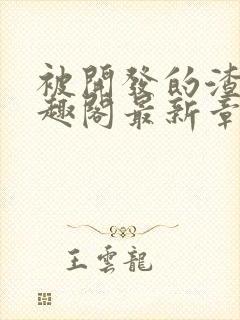 被開發的渣
趣閣最新章
王雲龍